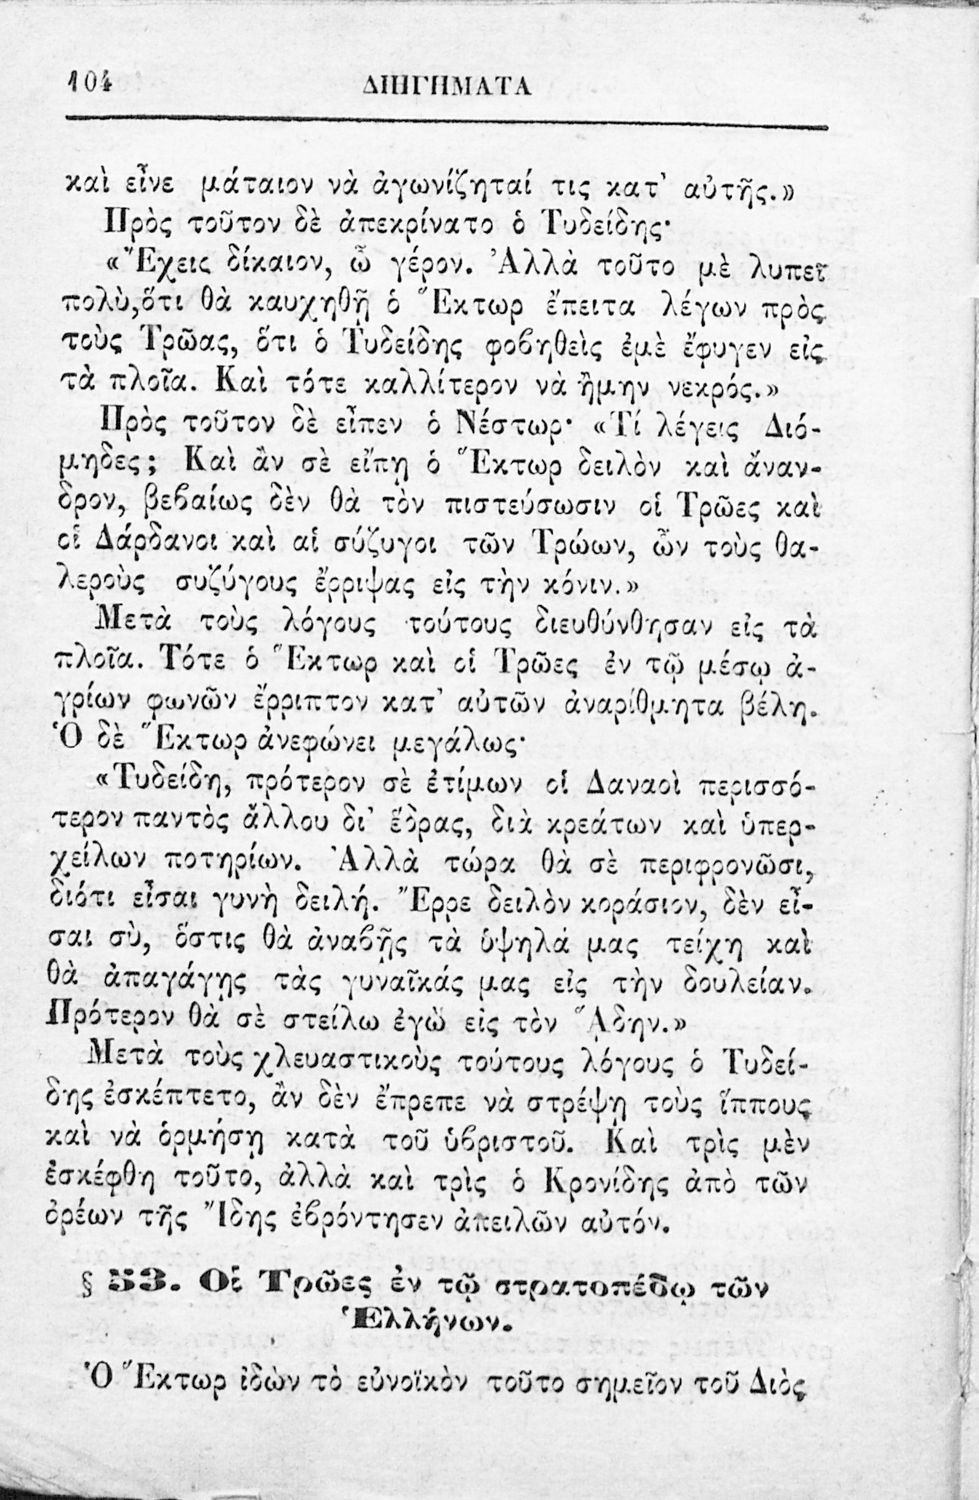 104 ΔΙΗΓΗΜΑΤΑ
καὶ εἶνε μάταιον νὰ ἀγωνίζηταί τις κατ' αὐτῆς.»
Πρὸς τοῦτον δὲ ἀπεκρίνατο ὁ Τυδείδης·
«Ἔχεις δίκαιον, ὦ γέρον. Ἀλλὰ τοῦτο μὲ λυπεῖ
πολὺ,ὅτι θὰ καυχηθῇ ὁ Ἕκτωρ ἔπειτα λέγων πρὸς
τοὺς Τρῶας, ὅτι ὁ Τυδείδης φοβηθεὶς ἐμὲ ἔφυγεν εἰς
τὰ πλοῖα. Καὶ τότε καλλίτερον νὰ ἤμην νεκρός.»
Πρὸς τοῦτον δὲ εἶπεν ὁ Νέστωρ· «Τί λέγεις Διό-
μηδες; Καὶ ἂν σὲ εἴπῃ ὁ Ἕκτωρ δειλὸν καὶ ἄναν-
δρον, βεβαίως δὲν θὰ τὸν πιστεύσωσιν οἱ Τρῶες καὶ
οἱ Δάρδανοι καὶ αἱ σύζυγοι τῶν Τρώων, ὧν τοὺς θα-
λεροὺς συζύγους ἔρριψας εἰς τὴν κόνιν.»
Μετὰ τοὺς λόγους τούτους διευθύνθησαν εἰς τὰ
πλοῖα. Τότε ὁ Ἕκτωρ καὶ οἱ Τρῶες ἐν τῷ μέσῳ ἀ-
γρίων φωνῶν ἔρριπτον κατ' αὐτῶν ἀναρίθμητα βέλη.
Ὁ δὲ Ἕκτωρ ἀνεφώνει μεγάλως·
«Τυδείδη, πρότερον σὲ ἐτίμων οἱ Δαναοὶ περισσό-
τερον παντὸς ἄλλου δι' ἕδρας, διὰ κρεάτων καὶ ὑπερ-
χείλων ποτηρίων. Ἀλλὰ τώρα θὰ σὲ περιφρονῶσι,
διότι εἶσαι γυνὴ δειλή. Ἔρρε δειλὸν κοράσιον, δὲν εἶ-
σαι σὺ, ὅστις θὰ ἀναβῇς τὰ ὑψηλά μας τείχη καὶ
θὰ ἀπαγάγῃς τὰς γυναῖκάς μας εἰς τὴν δουλείαν.
Πρότερον θὰ σὲ στείλω ἐγὼ εἰς τὸν ᾍδην.»
Μετὰ τοὺς χλευαστικοὺς τούτους λόγους ὁ Τυδεί-
δης ἐσκέπτετο, ἂν δὲν ἔπρεπε νὰ στρέψῃ τοὺς ἵππους
καὶ νὰ ὁρμήσῃ κατὰ τοῦ ὑβριστοῦ. Καὶ τρὶς μὲν
ἐσκέφθη τοῦτο, ἀλλὰ καὶ τρὶς ὁ Κρονίδης ἀπὸ τῶν
ὀρέων τῆς Ἴδης ἐβρόντησεν ἀπειλῶν αὐτόν.
§ 53. Οἱ Τρῶες ἐν τῷ στρατοπέδῳ τῶν
Ἑλλήνων.
Ὁ Ἕκτωρ ἰδὼν τὸ εὐνοϊκὸν τοῦτο σημεῖον τοῦ Διὸς